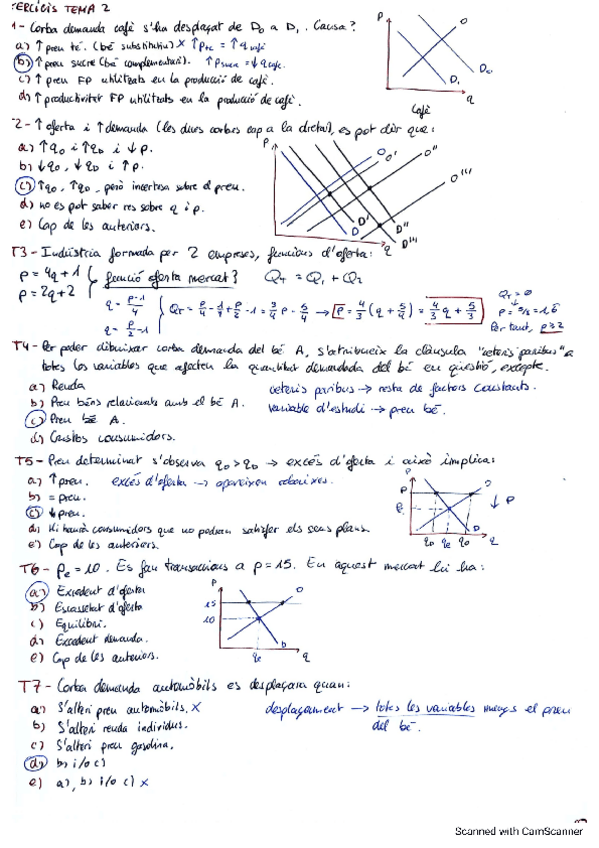 EXERCICIS TEMA 2
1- Corba demanda cafè s'ha desplaçat de D0 a D1. Causa?
a) ↑ preu té. (bé substitutiu) X ↑pte = ↑q cafè
b) ↑ preu sucre (bé complementari). ↑psucre = ↓q cafè.
c) ↑ preu FP utilitzats en la producció de cafè.
d) ↑ productivitat FP utilitzats en la producció de cafè.
P
D1
D0
q
Cafè
T2- ↑ oferta i ↑ demanda (les dues corbes cap a la dreta), es pot dir que:
a) ↑q0 i ↑qD i ↓p.
b) ↓q0, ↓qD i ↑p.
c) ↑q0, ↑qD, però incertesa sobre el preu.
d) no es pot saber res sobre q i p.
e) Cap de les anteriors.
P
O
O'
O''
O'''
D
D'
D''
D'''
q
T3- Indústria formada per 2 empreses, funcions d'oferta:
p = 4q + 1
p = 2q + 2
funció oferta mercat?
QT = Q1 + Q2
q = p-1/4
q = p/2 - 1
QT = p/4 - 1/4 + p/2 - 1 = 3/4 p - 5/4 → p = 4/3 (q + 5/4) = 4/3 q + 5/3
QT = 0
↓
p = 5/3 = 1,6
Per tant, p ≥ 2
T4- Per poder dibuixar corba demanda del bé A, s'atribueix la clàusula "ceteris paribus" a
totes les variables que afecten la quantitat demandada del bé en qüestió, excepte.
a) Renda
b) Preu béns relacionats amb el bé A.
c) Preu bé A.
d) Gustos consumidors.
ceteris paribus → resta de factors constants.
variable d'estudi → preu bé.
T5- Preu determinat s'observa q0 > qD → excés d'oferta i això implica:
a) ↑ preu.
b) = preu.
c) ↓ preu.
d) Hi haurà consumidors que no podran satisfer els seus plans.
e) Cap de les anteriors.
excés d'oferta → apareixen rebaixes.
P
P
Pe
O
D
qD qe q0 q
↓ p
T6- Pe = 10. Es fan transaccions a p = 15. En aquest mercat hi ha:
a) Excedent d'oferta
b) Escassetat d'oferta
c) Equilibri.
d) Excedent demanda.
e) Cap de les anteriors.
P
15
10
O
D
qe
q
T7- Corba demanda automòbils es desplaçarà quan:
a) S'alteri preu automòbils. X
b) S'alteri renda individus.
c) S'alteri preu gasolina.
d) b) i/o c)
e) a), b) i/o c) X
desplaçament → totes les variables menys el preu
del bé.
Scanned with CamScanner